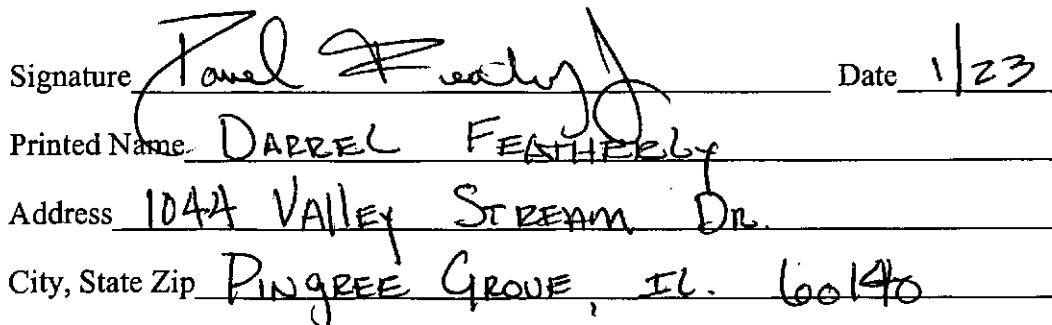 Signature Date 1/23
Printed Name DARREL FEATHERLY
Address 1044 VAllEy STREAM DR.
City, State Zip PINgREE GROVE, IL. 60140